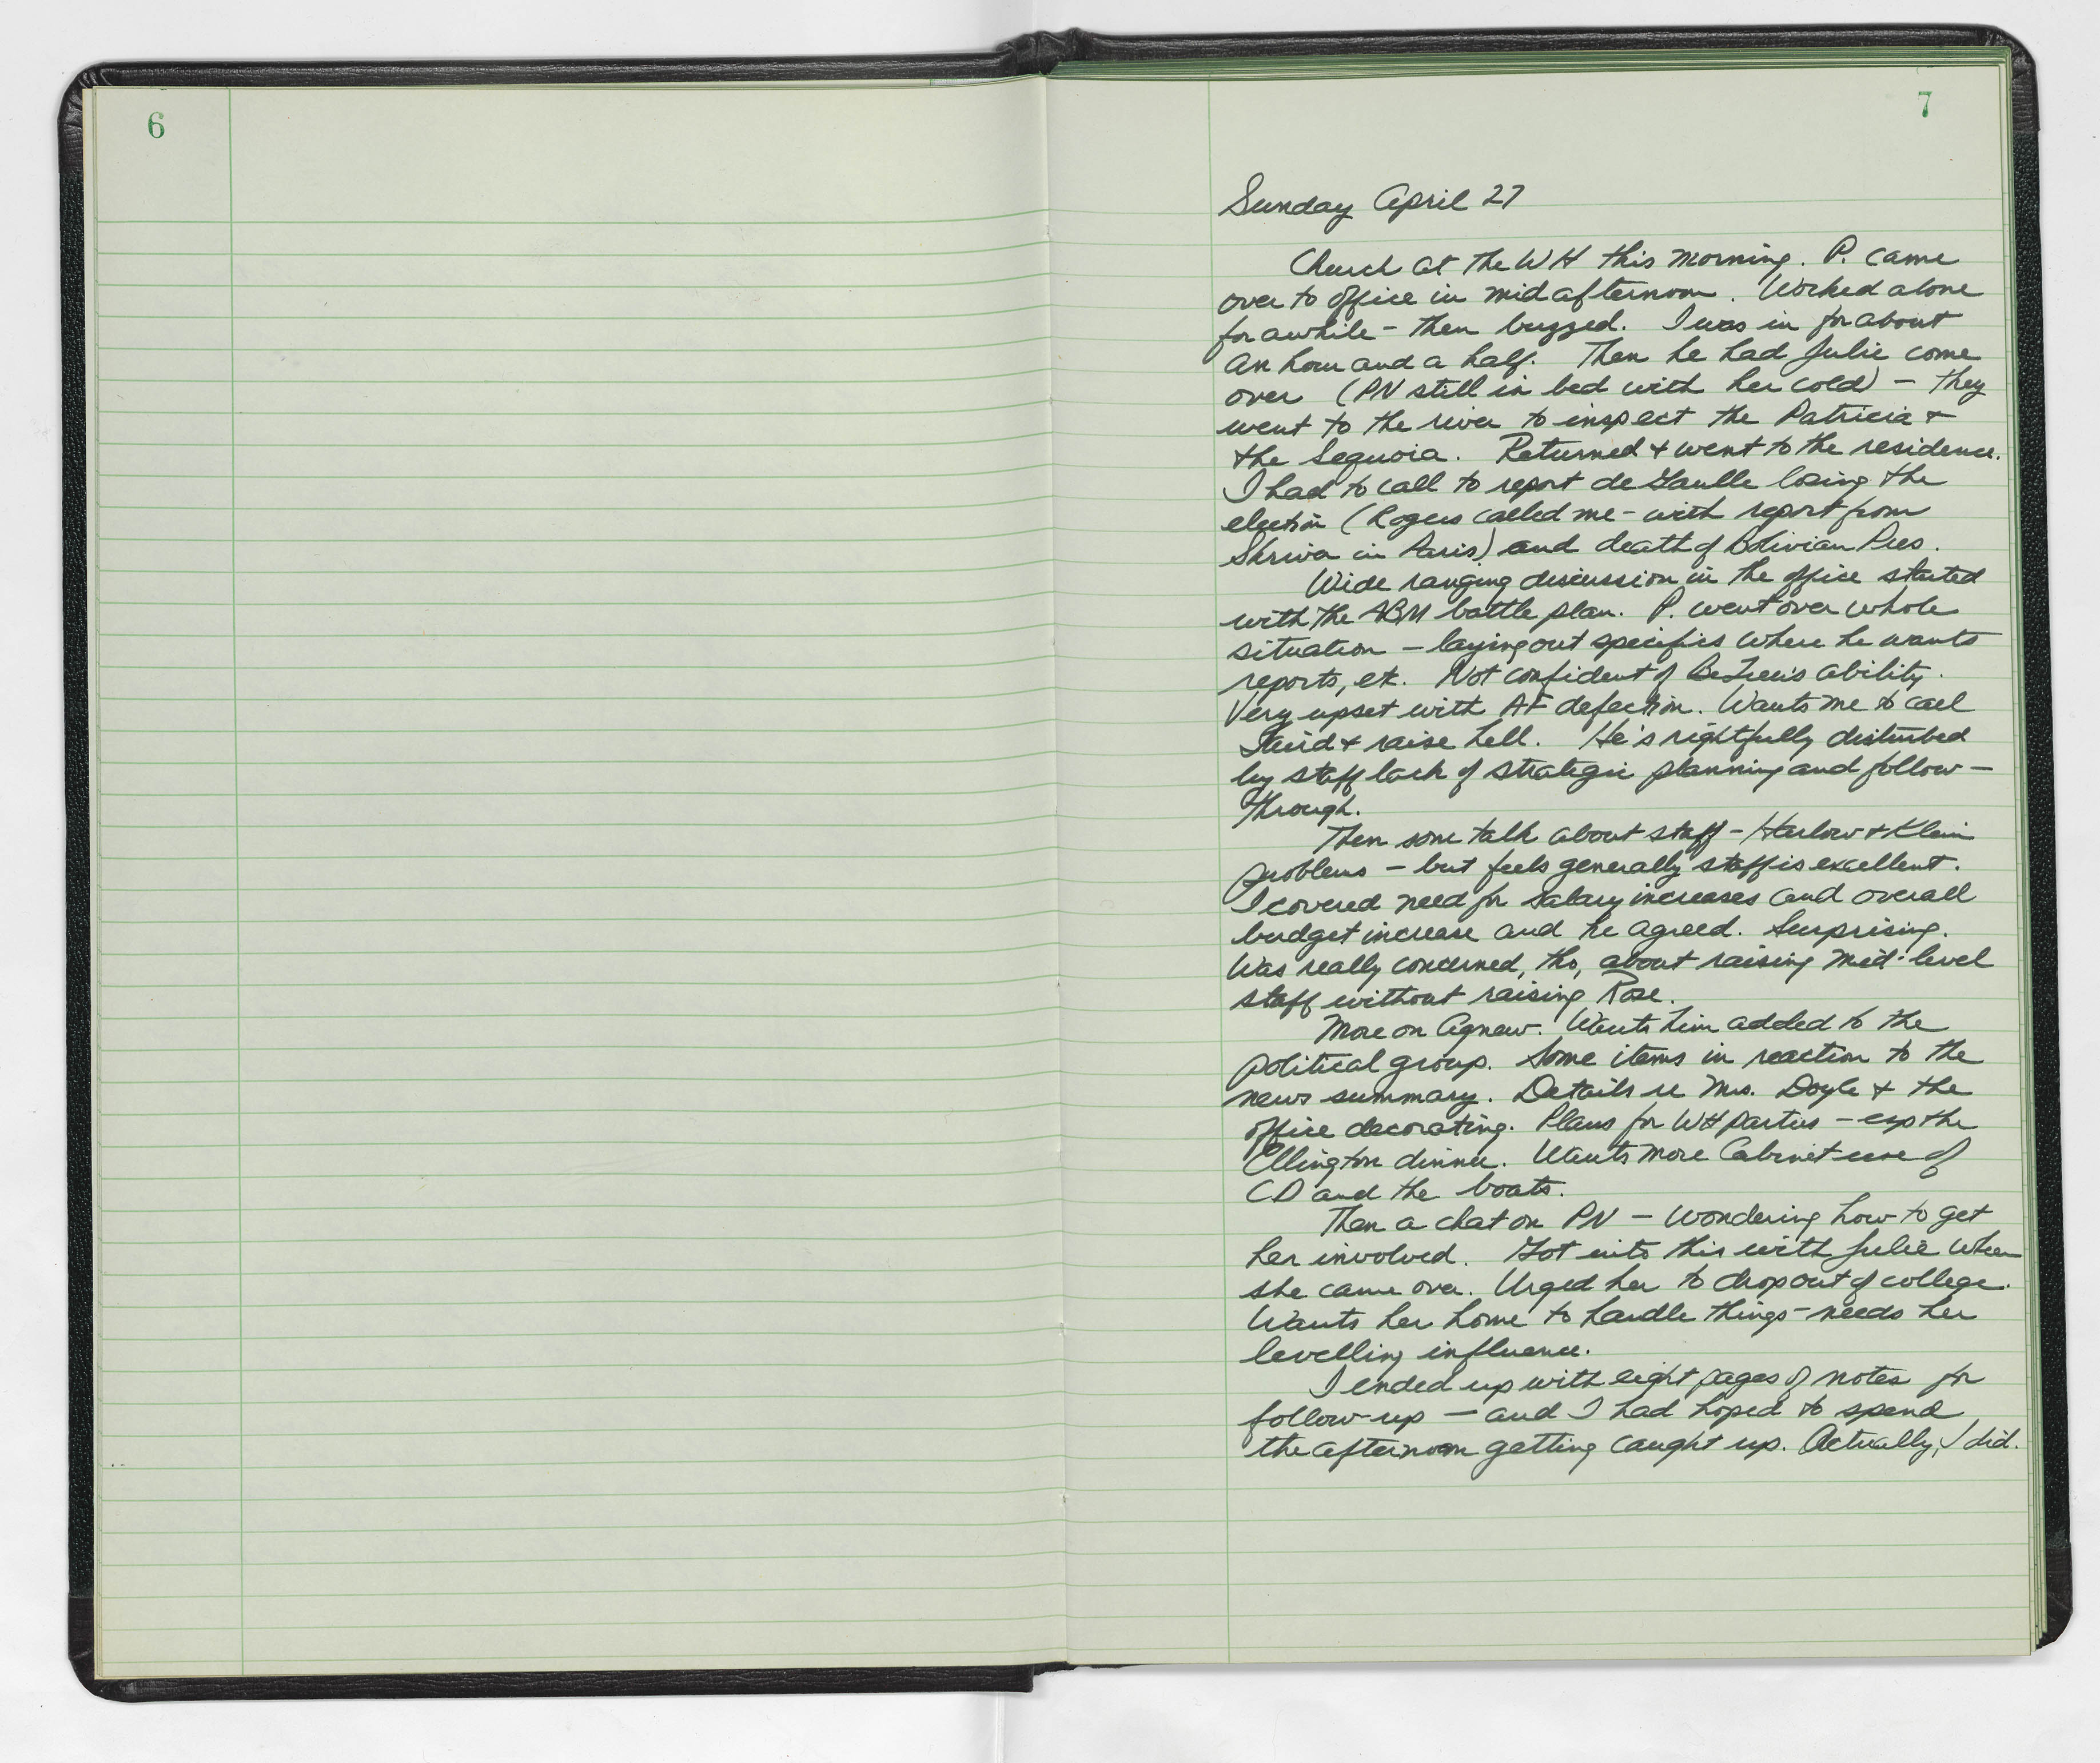 6
7
Sunday April 27
Church at the WH this morning. P. came
over to office in mid afternoon. Worked alone
for awhile - then buzzed. I was in for about
an hour and a half. Then he had Julie come
over (PN still in bed with her cold) - they
went to the river to inspect the Patricia &
the Sequoia. Returned & went to the residence.
I had to call to report deGaulle losing the
election (Rogers called me - with report from
Shriver in Paris) and death of Bolivian Pres.
Wide ranging discussion in the office started
with the ABM battle plan. P. went over whole
situation - laying out specifics where he wants
reports, etc. Not confident of BeLieu's ability.
Very upset with AF defection. Wants me to call
Laird & raise hell. He's rightfully disturbed
by staff lack of strategic planning and follow-
through.
Then some talk about staff - Harlow & Klein
problems - but feels generally staff is excellent.
I covered need for salary increases and overall
budget increase and he agreed. Surprising.
Was really concerned, tho, about raising mid-level
staff without raising Rose.
More on Agnew. Wants him added to the
political group. Some items in reaction to the
news summary. Details re Mrs. Doyle & the
office decorating. Plans for WH parties - esp the
Ellington dinner. Wants more Cabinet use of
CD and the boats.
Then a chat on PN - wondering how to get
her involved. Got into this with Julie when
she came over. Urged her to drop out of college.
Wants her home to handle things - needs her
levelling influence.
I ended up with eight pages of notes for
follow-up - and I had hoped to spend
the afternoon getting caught up. Actually, I did.